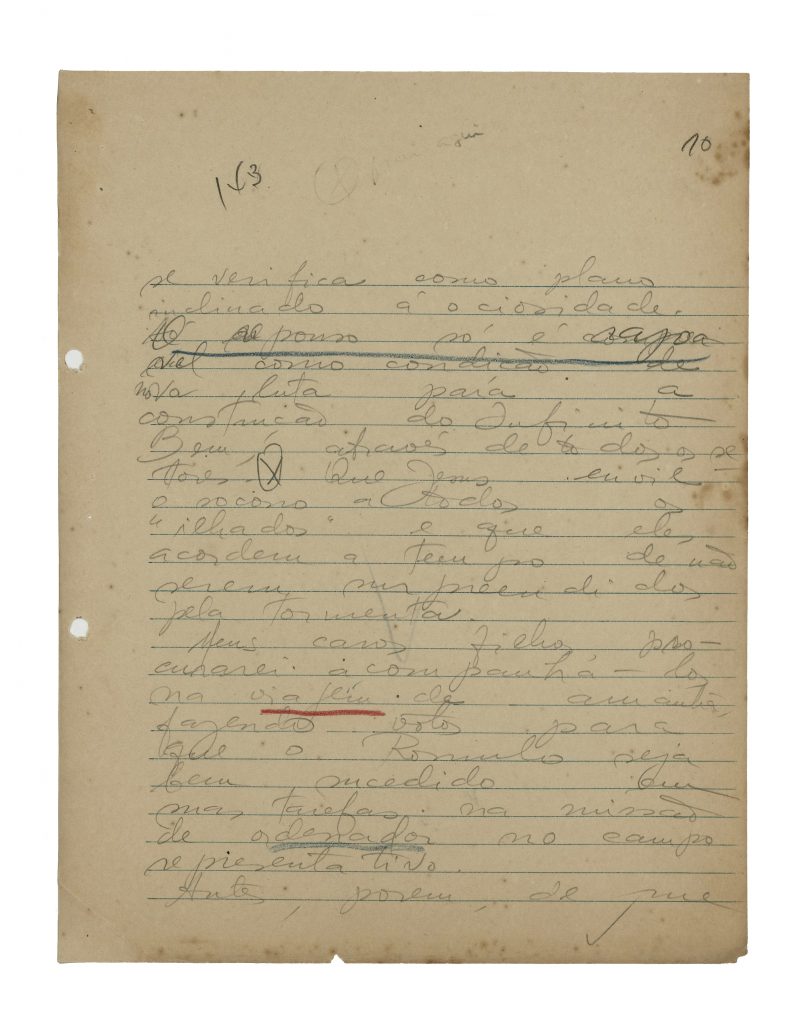 10
143
aqui
se verifica como plano
inclinado á ociosidade.
O repouso só é razoa
vel como condição de
nova luta para a
construção do Infinito
Bem, através de todos os se
tores. Que Jesus envie
o socorro a todos os
"ilhados" e que eles
acordem a tempo de não
serem surpreendidos
pela tormenta.
Meus caros filhos, pro-
curarei acompanhá-los
na viagem de amanhã,
fazendo votos para
que o Romulo seja
bem sucedido em
suas tarefas na missão
de ordenador no campo
representativo.
Antes, porem, de que